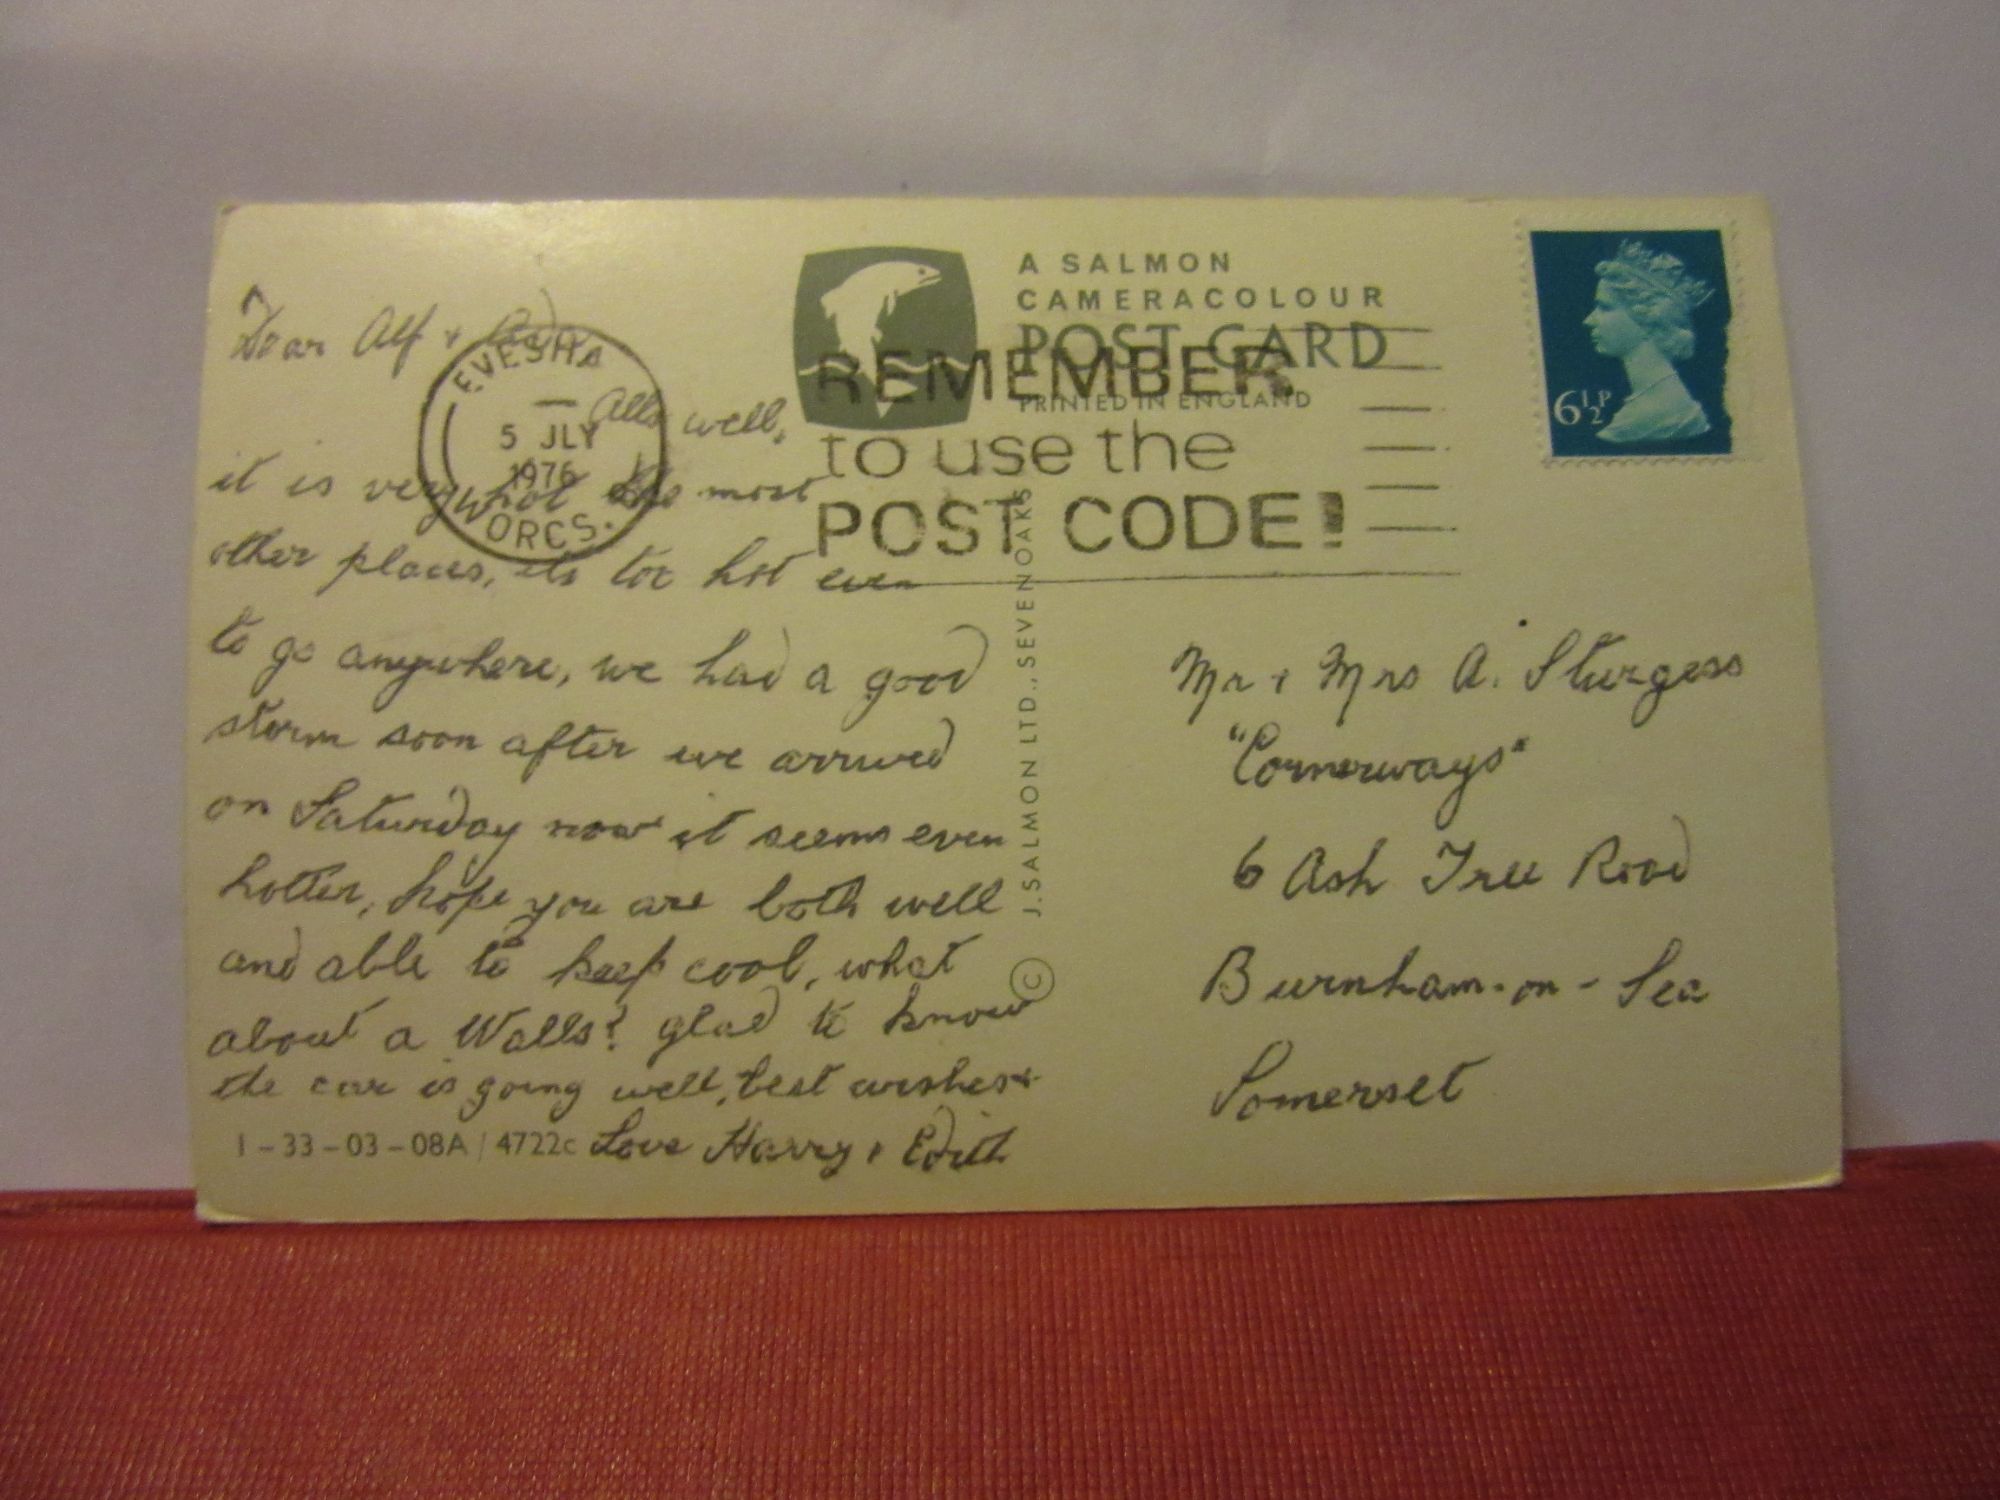 A SALMON
CAMERACOLOUR
POST CARD
PRINTED IN ENGLAND
EVESHA
5 JLY
1976
WORCS.
REMEMBER
to use the
POST CODE!
6½P
Dear Alf +
Alls well,
it is very hot like most
other places, its too hot even
to go anywhere, we had a good
storm soon after we arrived
on Saturday now it seems even
hotter, hope you are both well
and able to keep cool, what
about a Walls? glad to know
the car is going well, best wishes +
Love Harry + Edith
1-33-03-08A | 4722c
© J. SALMON LTD., SEVENOAKS
Mr + Mrs A. Sturgess
"Cornerways"
6 Ash Tree Road
Burnham-on-Sea
Somerset